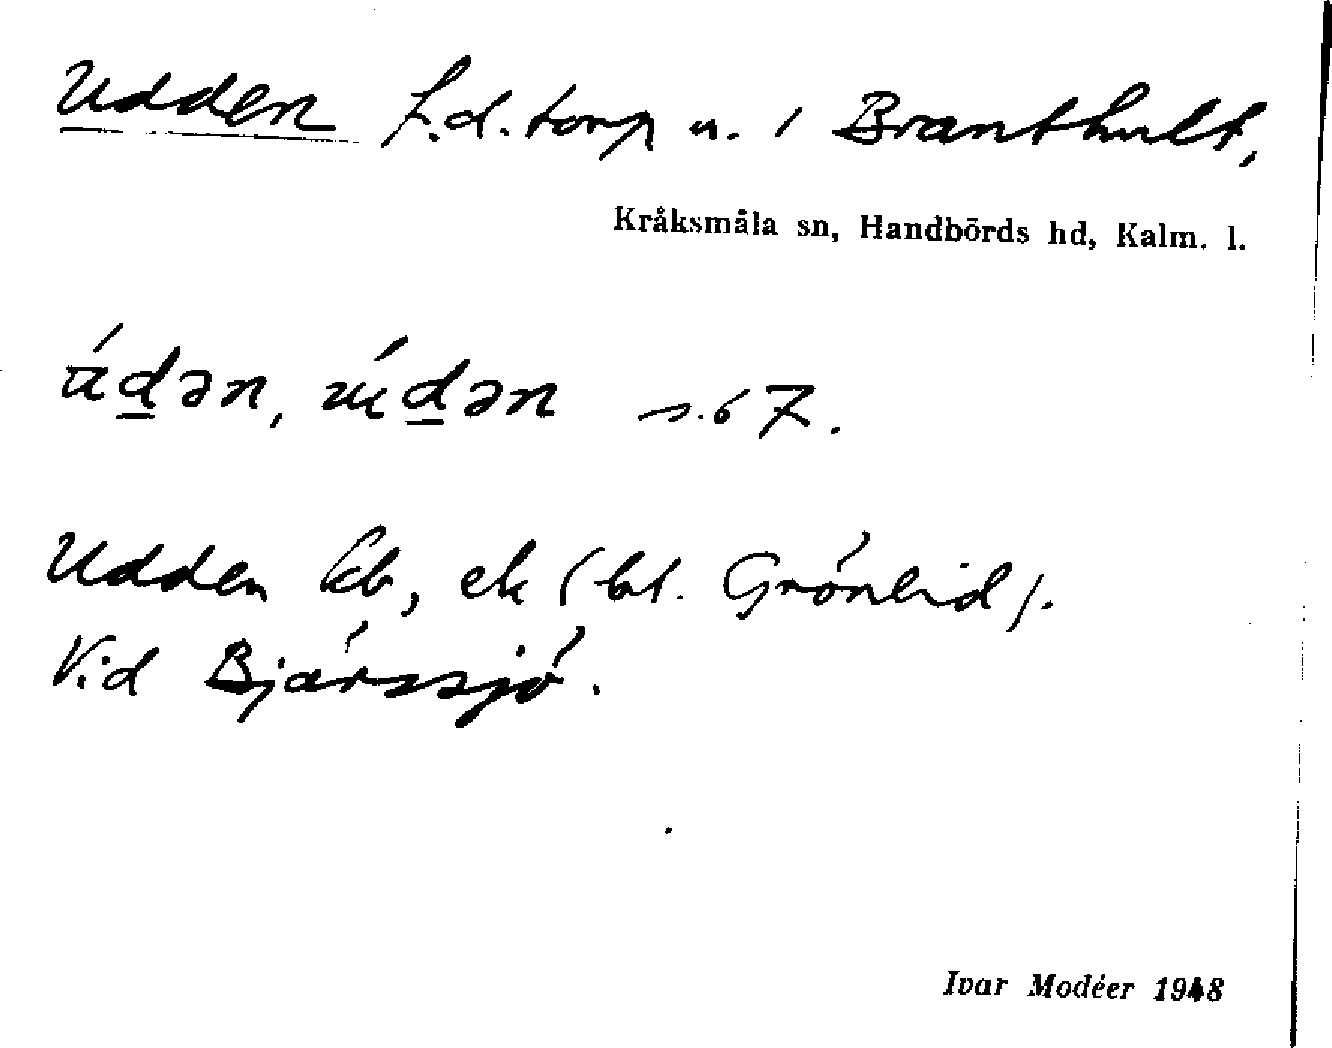 Udden f.d. torp u. 1 Branthult,
Kråksmåla sn, Handbörds hd, Kalm. l.
úd̲ən, úd̲ən s. 67.
Udden kb, ek (bl. Grónlid).
Vid Bjárssjó.
Ivar Modéer 1948